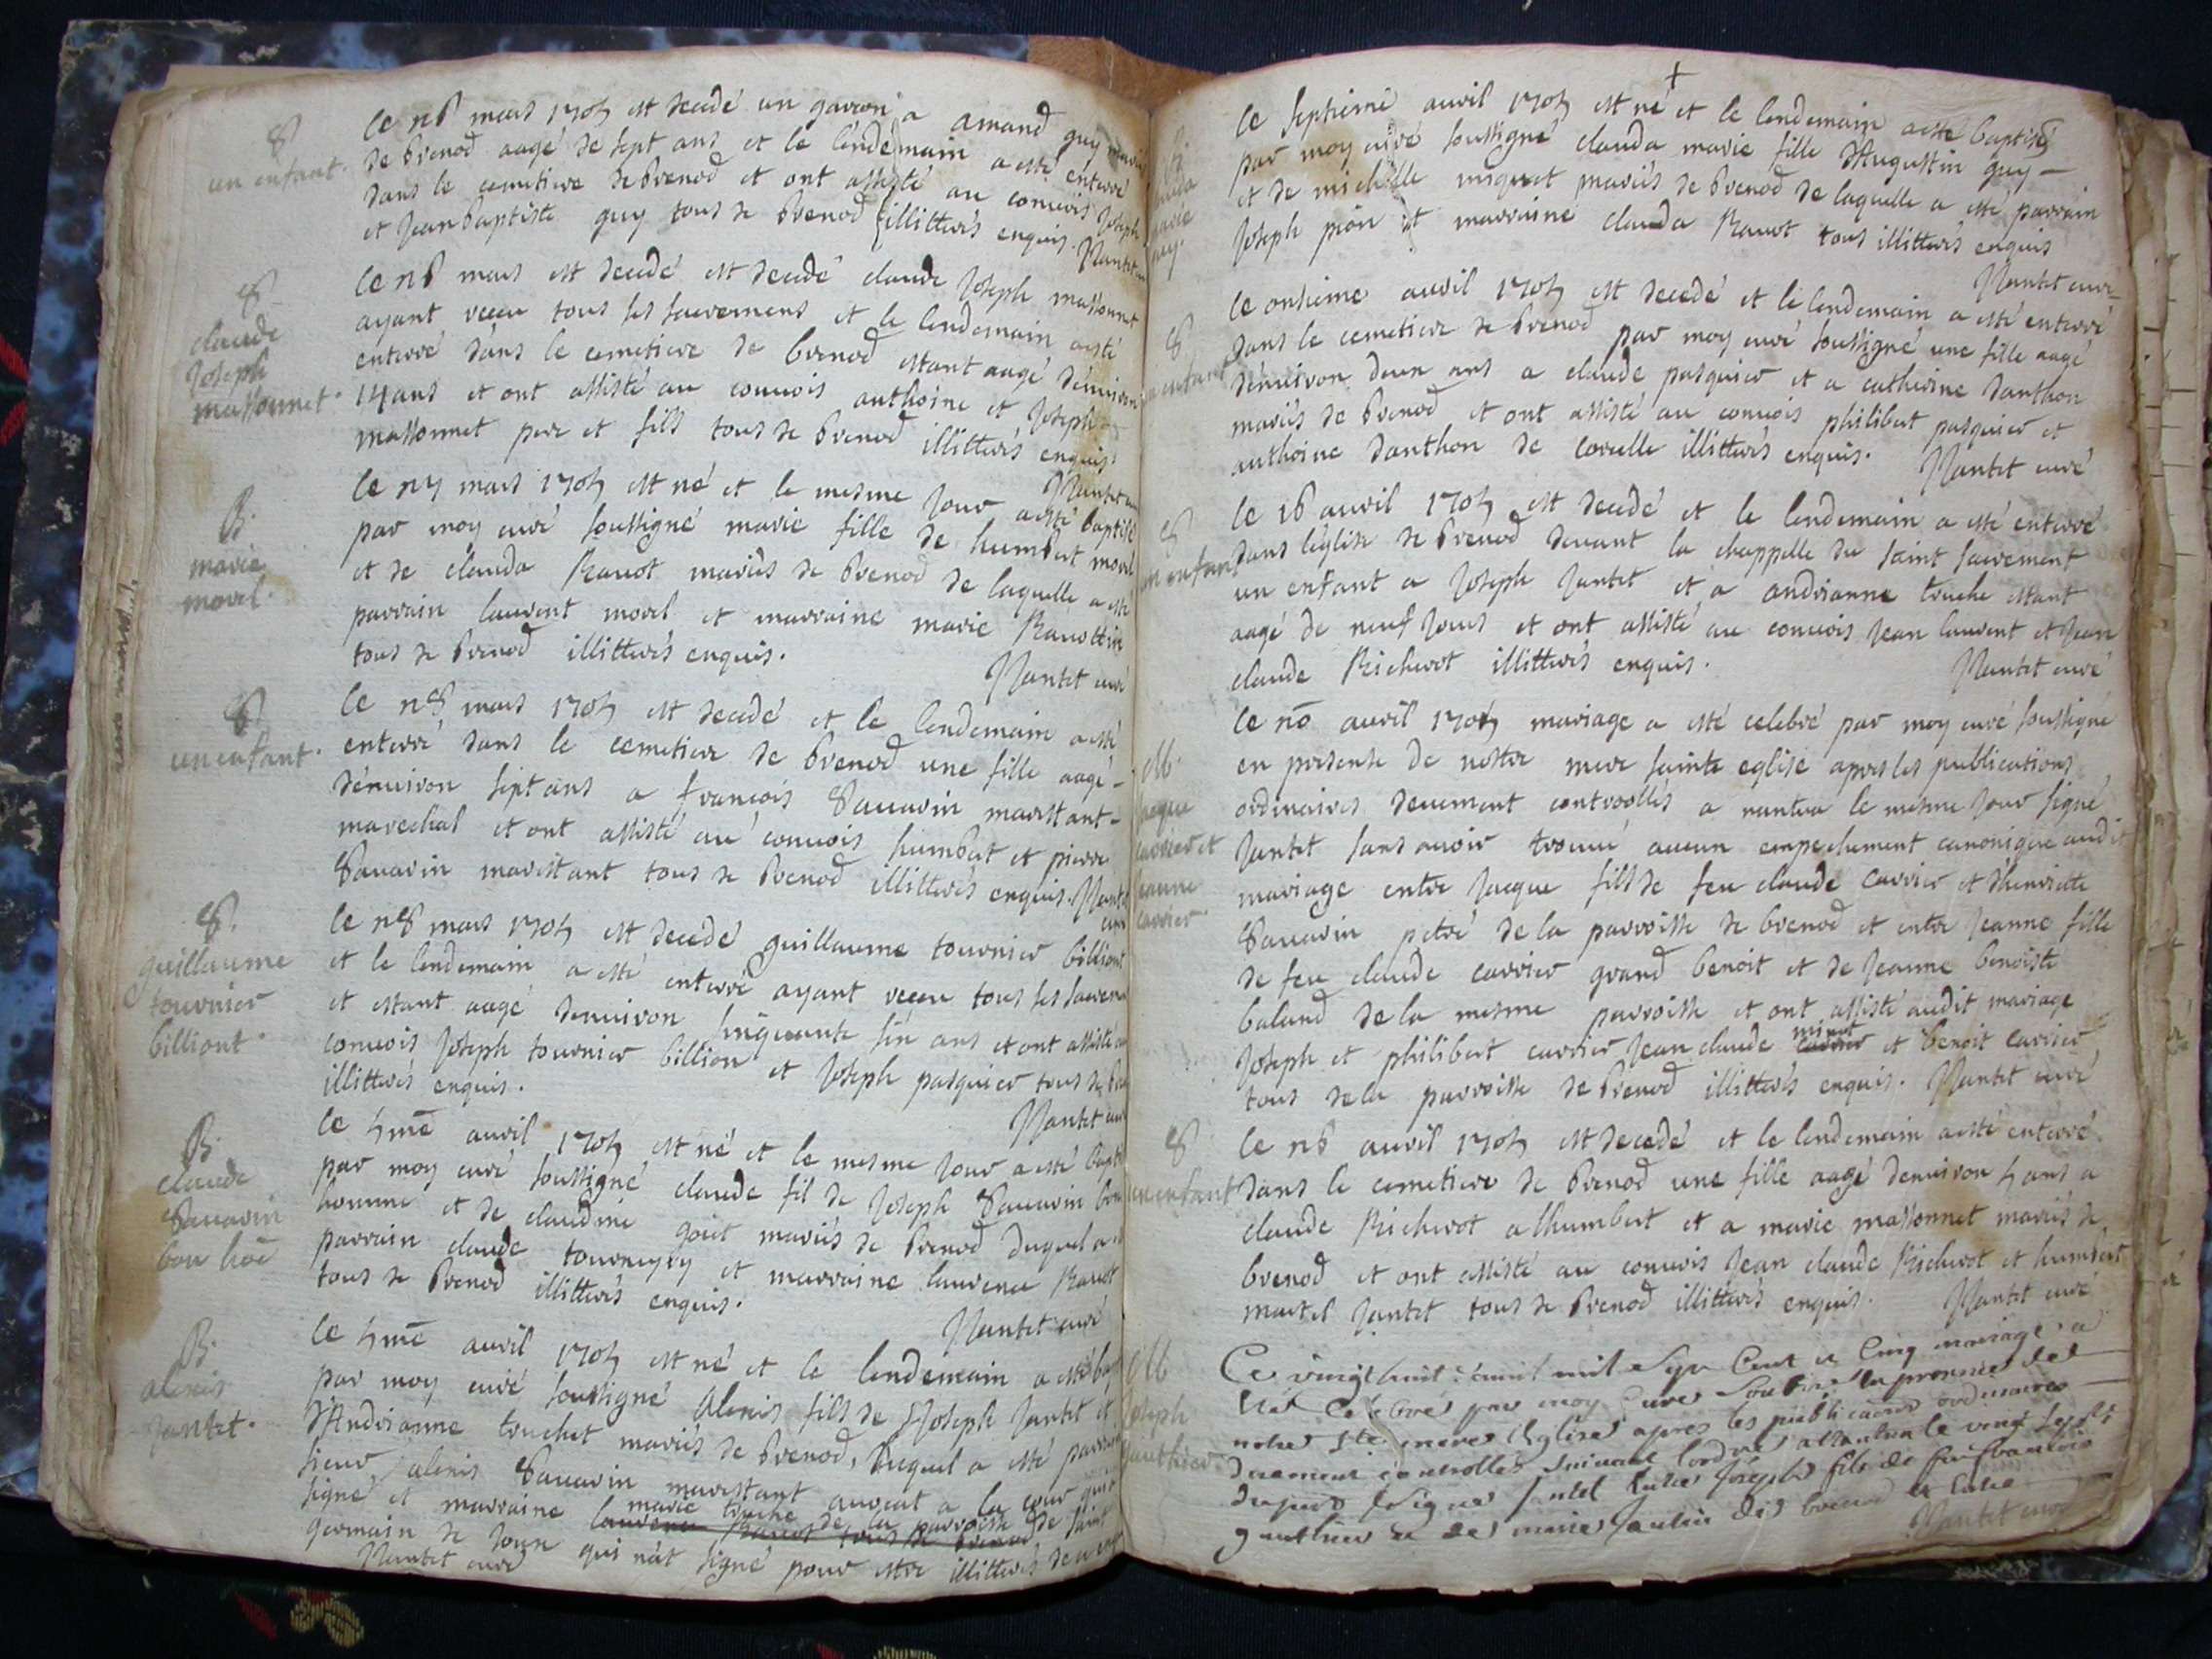 8
un enfant.
le 26 mars 1705 est decedé un garcon a amand guy
de brenod aagé de sept ans et le lendemain a esté enterré
dans le cemetiere de brenod et ont assisté au conuois Joseph
et Jean baptiste guy tous de brenod illitterés enquis. Nantet
8
claude
Joseph
massonnet.
le 26 mars est decedé est decedé claude Joseph massonnet
ayant receu tous ses sacremens et le lendemain a esté
enterré dans le cemetiere de brenod estant aagé denuiron
14 ans et ont assisté au conuois anthoine et Joseph
massonnet pere et fils tous de brenod illitterés enquis.
Nantet
B.
marie
morel.
le 27 mars 1705 est né et le mesme Jour a esté baptisé
par moy curé soussigné marie fille de humbert morel
et de clauda Rauot mariés de brenod de laquelle a esté
parrain laurent morel et marraine marie Rauottin
tous de brenod illitterés enquis.
Nantet curé
8
un enfant.
le 28 mars 1705 est decedé et le lendemain a esté
enterré dans le cemetiere de brenod une fille aagé
denuiron sept ans a francois Sauarin marestant
marechal et ont assisté au conuois humbert et pierre
Sauarin marestant tous de brenod illitterés enquis. Nantet
curé
8.
guillaume
tournier
billiont.
le 28 mars 1705 est decedé guillaume tournier billiont
et le lendemain a esté enterré ayant receu tous ses sacrem
et estant aagé denuiron sinquante sin ans et ont assisté au
conuois Joseph tournier billion et Joseph pasquier tous de
illitterés enquis.
Nantet curé
B.
claude
Sauarin
bon hoē
le 5mē auril 1705 est né et le mesme Jour a esté bapt
par moy curé soussigné claude fil de Joseph Sauarin bon
homme et de claudine goiet mariés de brenod duquel a
parrain claude tournery et marraine laurence Rauot
tous de brenod illitterés enquis.
Nantet curé
B.
alexis
Jantet.
le 5mē auril 1705 est né et le lendemain a esté bap
par moy curé soussigné Alexis fils de Joseph Jantet et
d'Andrianne touchet mariés de brenod, duquel a esté parrain
sieur alexis Sauarin marestant auocat a la cour qui a
signé et marraine marie touche de la parroisse de saint
germain de Joux qui n'at signé pour estre illitterés de
Nantet curé
clauda
marie
guy.
le septiéme auril 1705 est né et le lendemain a esté baptisé
par moy curé soussigné clauda marie fille d'Augustin guy
et de michelle miguet mariés de brenod de laquelle a esté parrain
Joseph pion et marraine clauda Rauot tous illitterés enquis
Nantet curé
8
un enfant
le onsieme auril 1705 est decedé et le lendemain a esté enterré
dans le cemetiere de brenod par moy curé soussigné une fille aagé
denuiron deux ans a claude pasquier et a catherine danthon
mariés de brenod et ont assisté au conuois philibert pasquier et
anthoine danthon de corcelle illitterés enquis. Nantet curé
8
un enfant
le 16 auril 1705 est decedé et le lendemain a esté enterré
dans léglise de brenod deuant la chappelle du saint sacrement
un enfant a Joseph Jantet et a andrianne touche estant
aagé de neuf Jours et ont assisté au conuois Jean laurent et Jean
claude Richerot illitterés enquis.
Nantet curé
M.
Jacque
carrier et
Jeanne
carrier.
le 20 auril 1705 mariage a esté celebré par moy curé soussigné
en presence de nostre mere sainte eglise apres les publications
ordinaires deuement controollés a nantua le mesme Jour signé
Jantet sans auoir trouué aucun empechement canonique audit
mariage entre Jacque fils de feu claude carrier et d'henriette
Sauarin petré de la parroisse de brenod et entre Jeanne fille
de feu claude carrier grand benoit et de Jeanne benoiste
baland de la mesme parroisse et ont assisté audit mariage
Joseph et philibert carrier Jean claude minet et benoit carrier
tous de la parroisse de brenod illitterés enquis. Nantet curé
8
un enfant
le 26 auril 1705 est decedé et le lendemain a esté enterré
dans le cemetiere de brenod une fille aagé denuiron 5 ans a
claude Richerot a lhumbert et a marie massonnet mariés de
brenod et ont assisté au conuois Jean claude Richerot et humbert
martel Jantet tous de brenod illitterés enquis.
Nantet curé
M
Joseph
gauthier
Ce vingt huit auril mil sept cent et cinq mariage a
été Celebré par moy Curé soubsigné en presence de
notre ste mere Eglise apres les publications ordinaires
duement controlles suiuant lordre a Nantua le vingt sept
du signé Jantet entre Joseph fils de feu francois
gauthier et de marie de brenod et entre
Nantet curé